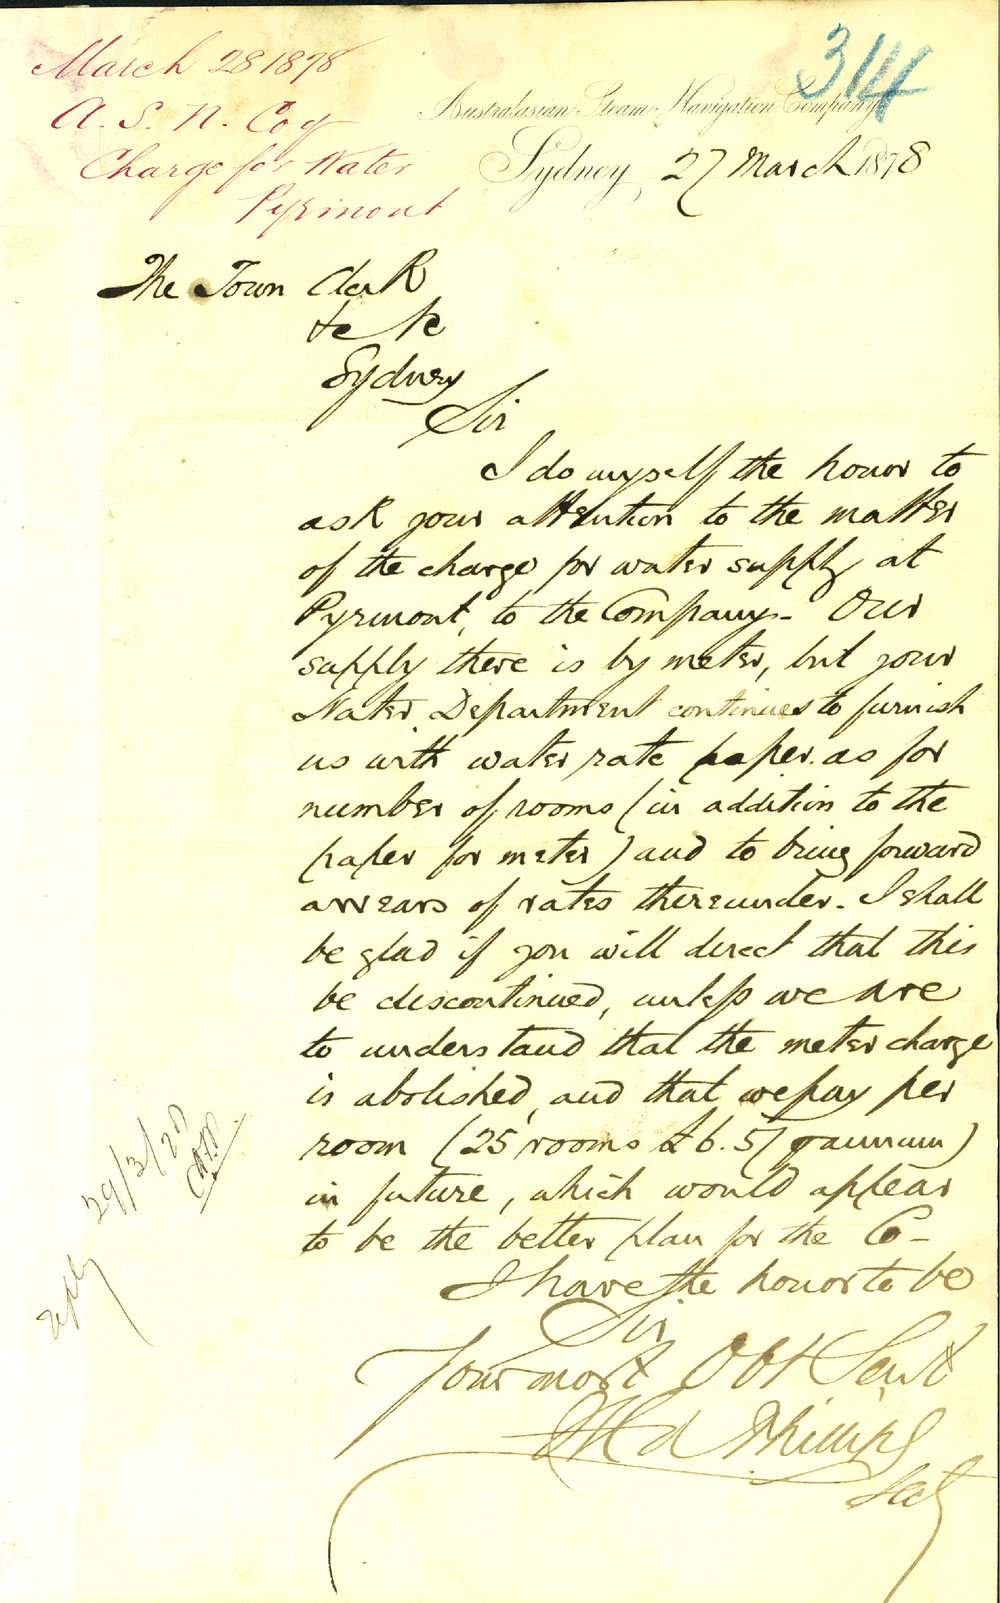 March 28 1878
A. S. N. Coy
Charge for Water
Pyrmont
314
Australasian Steam Navigation Company
Sydney, 27 March 1878
The Town Clerk
&c &c
Sydney
Sir
I do myself the honor to
ask your attention to the matter
of the charge for water supply at
Pyrmont, to the Company. Our
supply there is by meter, but your
Water Department continues to furnish
us with water rate paper as for
number of rooms (in addition to the
paper for meter) and to bring forward
arrears of rates thereunder. I shall
be glad if you will direct that this
be discontinued, unless we are
to understand that the meter charge
is abolished, and that we pay per
room (25 rooms £6.5/ annum)
in future, which would appear
to be the better plan for the Co-
I have the honor to be
Sir
Your most Obt Servt
Phillips
Secy
29/3/